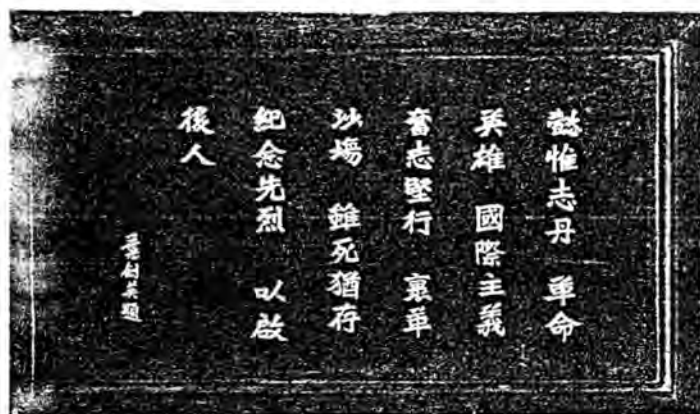 懿惟志丹　革命
英雄　國際主義
奮志堅行　裹革
沙場　雖死猶存
紀念先烈　以啟
後人
葉劍英題